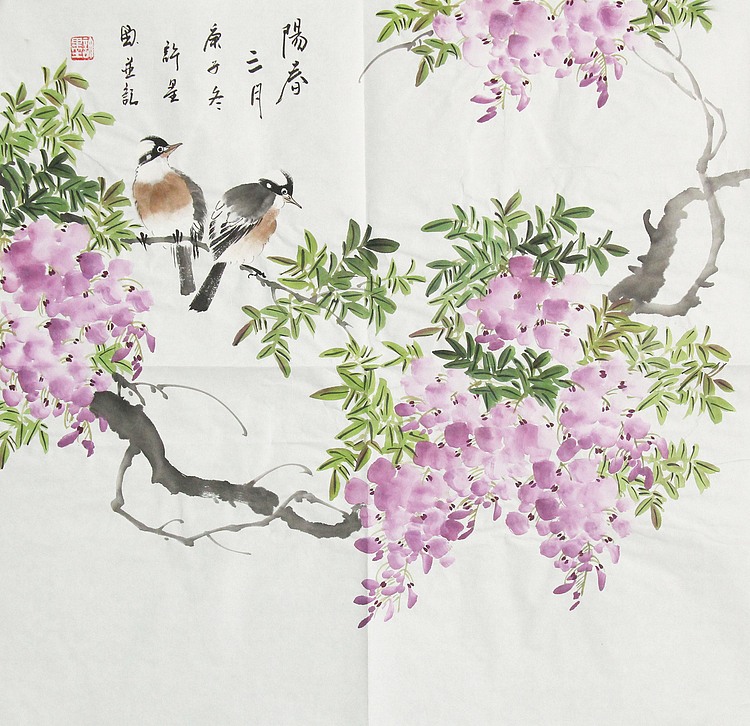 陽春
三月
庚子冬
許星
圖並記